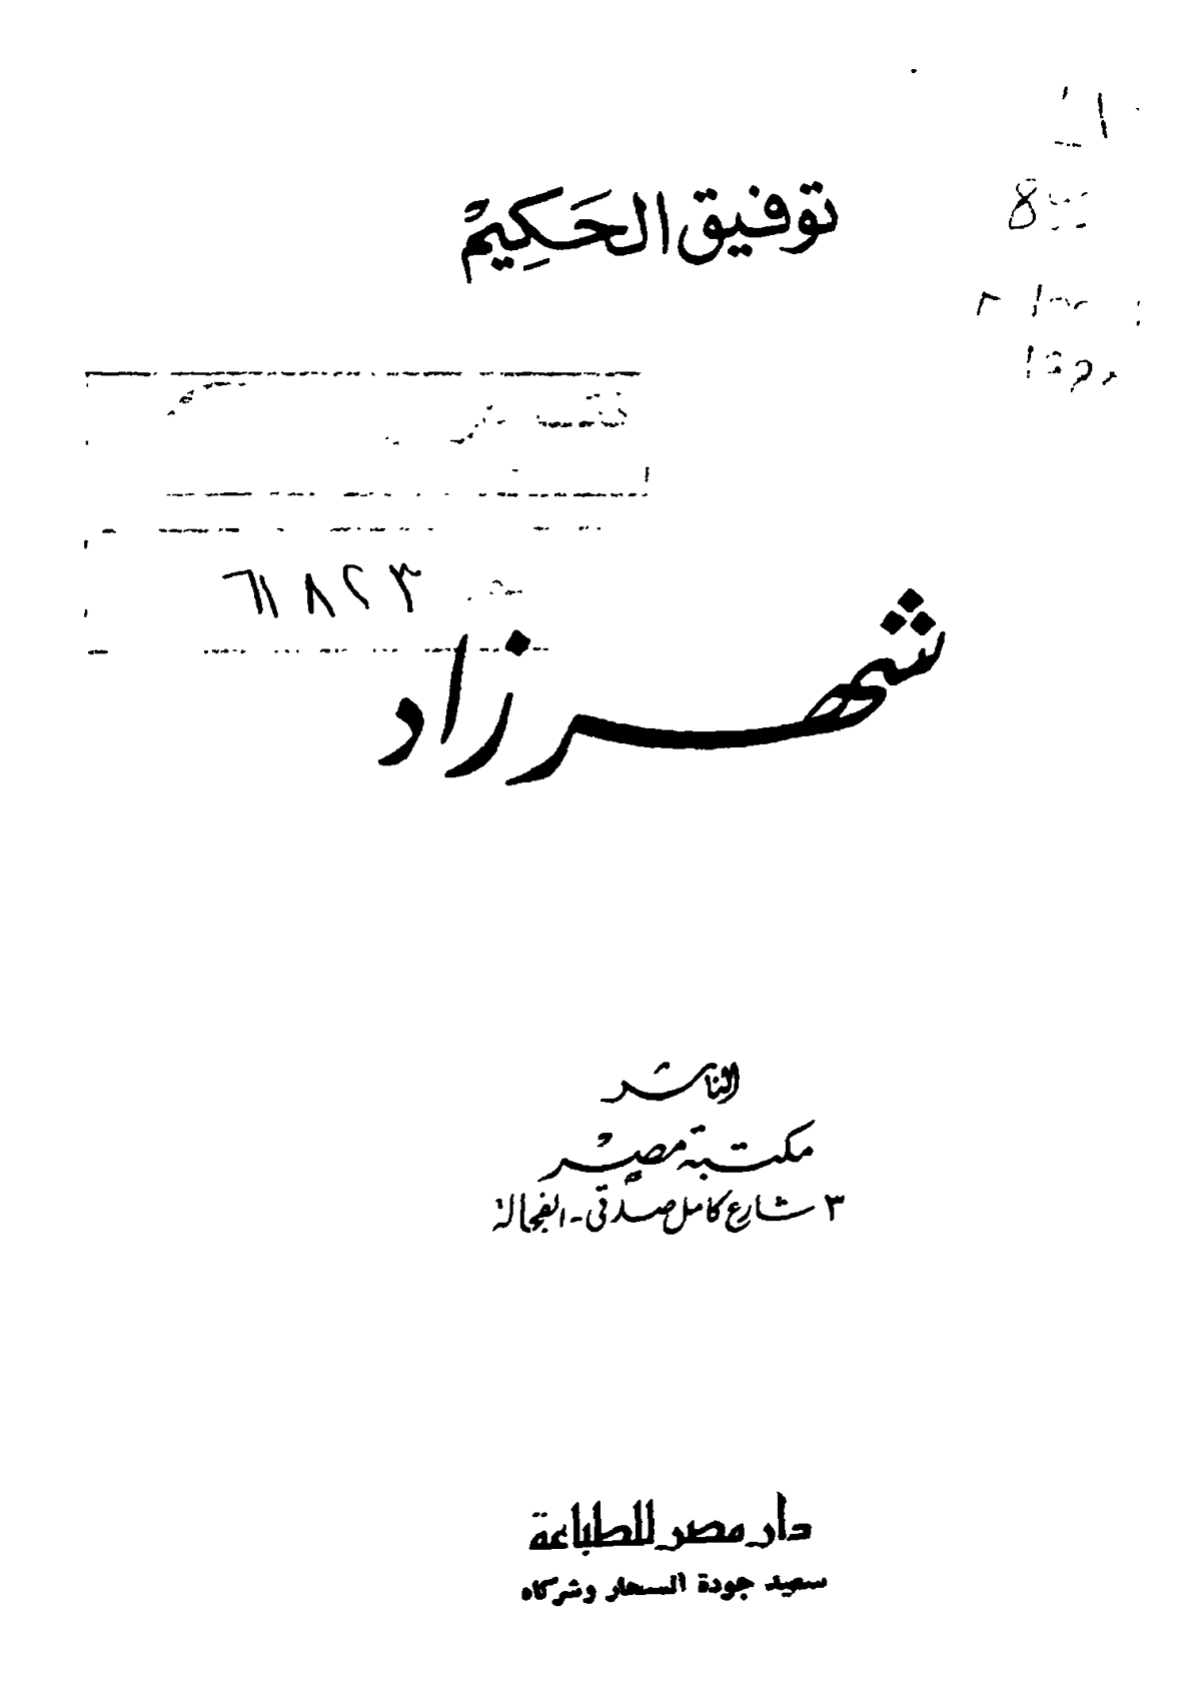 توفيق الحَكِيمْ
٦١٨٢٣
شهرزاد
الناشر
مكتبة مصر
٣ شارع كامل صدقى - الفجالة
دار مصر للطباعة
سعيد جودة السحار وشركاه